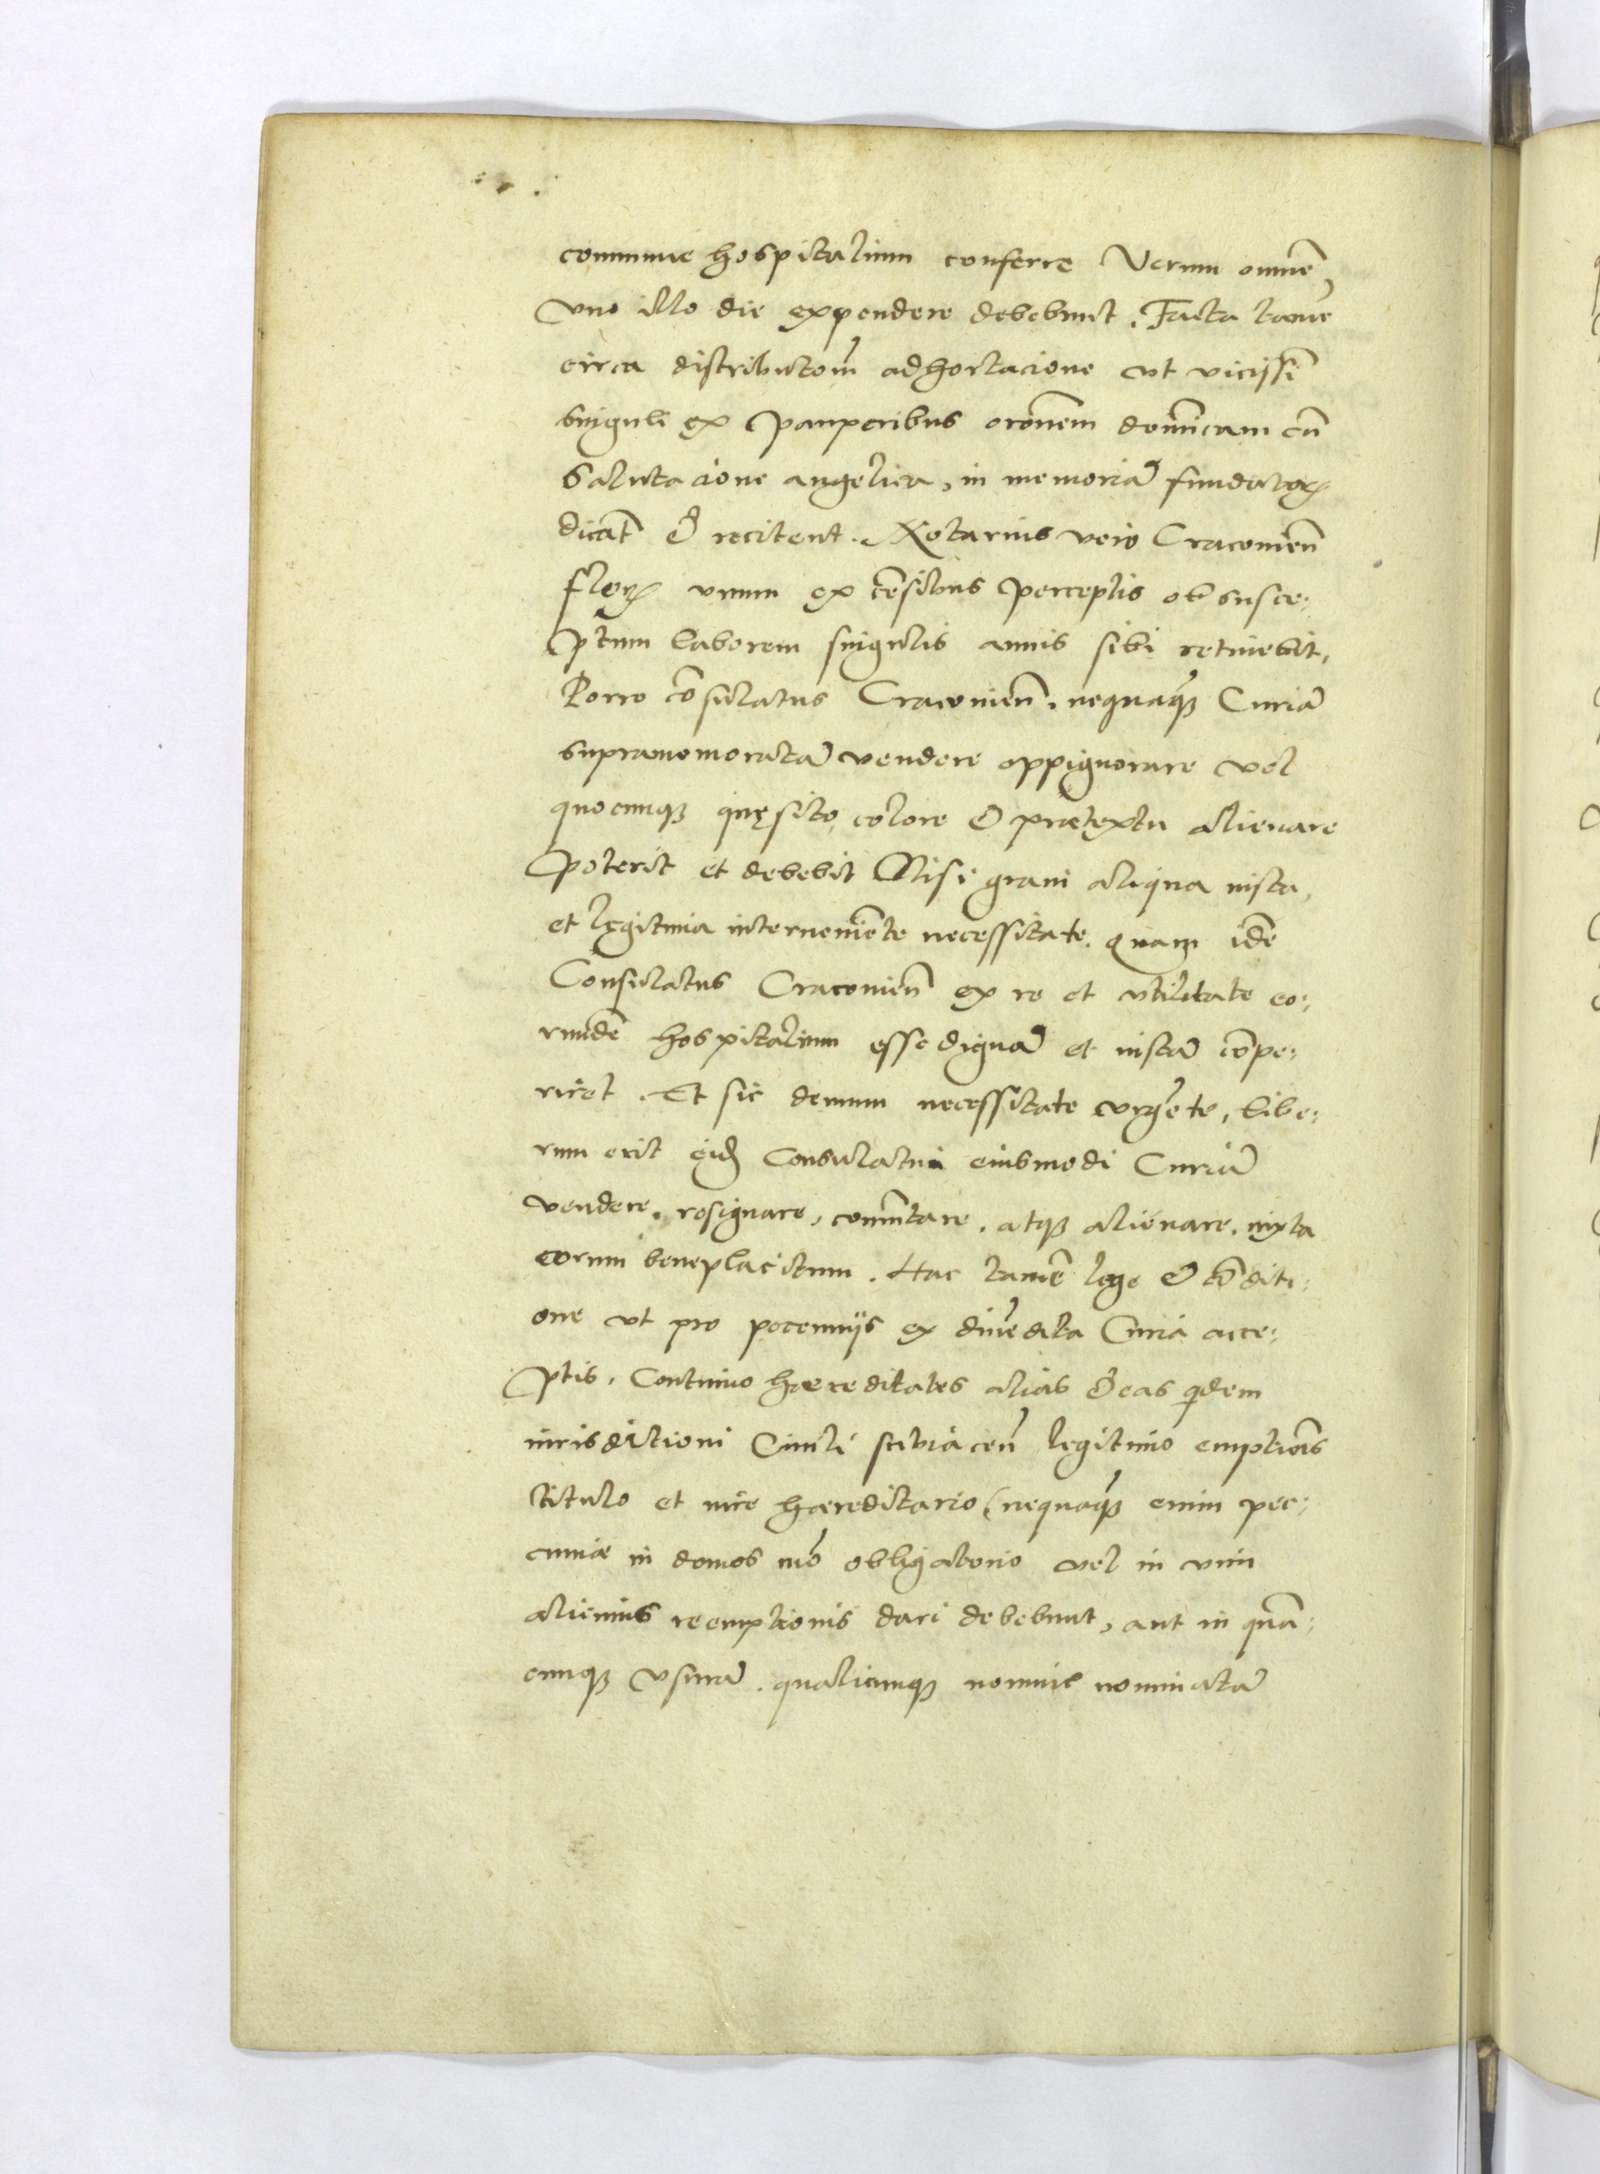 commune hospitalium conferre Verum omnē,
vno illo die expendere debebunt. Facta tamē
circa distributoēm adhortacione vt vicissī
singuli ex pauperibus orōnem domīcam cū
Salutacione angelica, in memoriā fundatoꝝ
dicāt & recitent. Notarius vero Cracouienn̄
floꝝ vnum ex cēsibus perceptis ob susce:
ptum laborem singulis annis sibi retinebit,
Porro cōsulatus Cracouienn̄. nequaqꝫ Curiā
supramemoratā vendere oppignorare vel
quocumqꝫ quęsito colore & prætextu alienare
poterit et debebit Nisi graui aliqua iusta,
et legitima interueniēte necessitate. quam idē
Consulatus Cracouienn̄ ex re et vtilitate eo:
rundē hospitalium esse dignā et iustā cōpe:
riret. Et sic demum necessitate vrgēte, libe:
rum erit eidꝫ Consulatui eiusmodi Curiā
vendere. resignare, commutare. atqꝫ alienare. iuxta
eorum beneplacitum. Hac tamē lege & cōditi:
one vt pro pecunijs ex diuēdita Curia acce:
ptis, Continuo hæreditates alias & eas qdem
iurisdictioni Ciuili subiacen̄ legitimo emptiois
titulo et iure hæreditario (nequaqꝫ enim pec:
cuniæ in domos mō obligatorio vel in vim
alicuius reemptionis dari debebunt, aut in quā:
cumqꝫ vsurā. qualicumqꝫ nomine nominatā